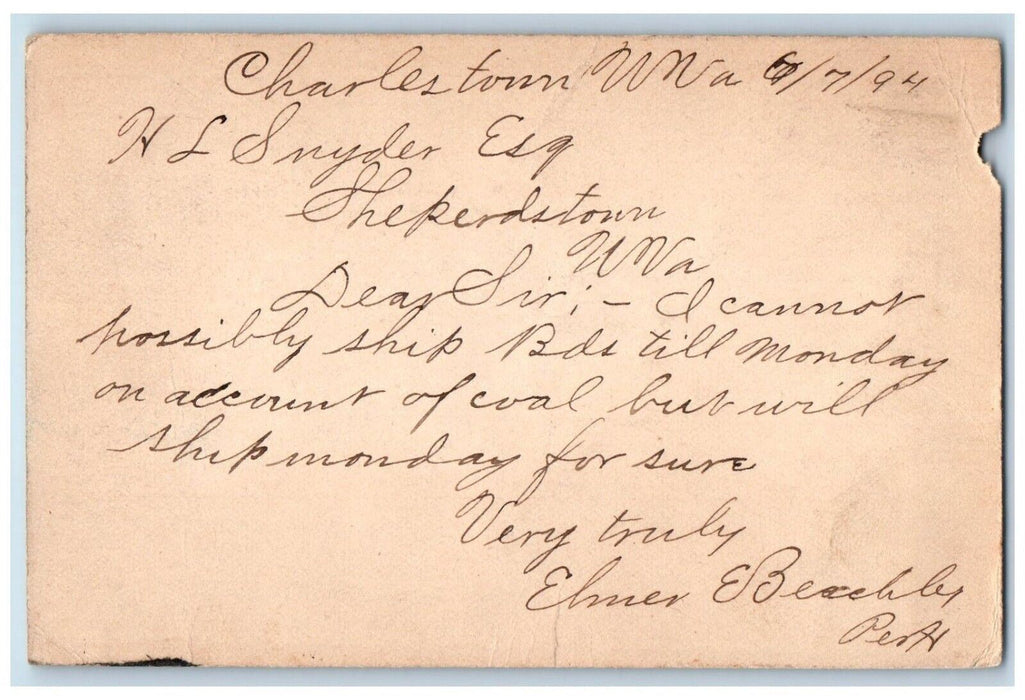 Charlestown W Va 6/7/94
H L Snyder Esq
Sheperdstown
W Va
Dear Sir;- I cannot
possibly ship Bds till Monday
on account of coal but will
ship monday for sure
Very truly
Elmer E Beachley
Per H